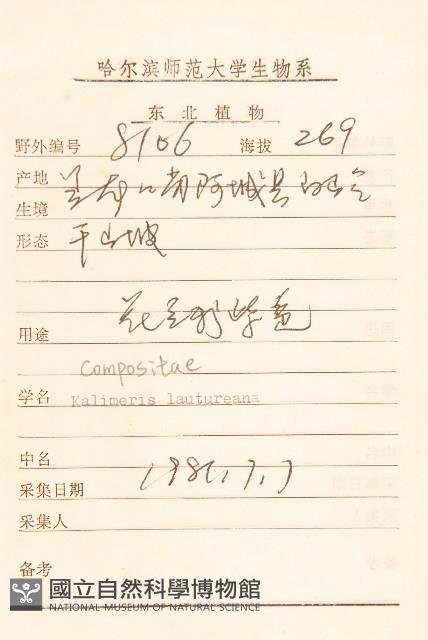 哈尔滨师范大学生物系
东北植物
野外编号 8106 海拔 269
产地 江省阿城县
生境
形态 干山坡
花
用途
Compositae
学名 Kalimeris lautureana
中名
采集日期 1981.7.7
采集人
备考
國立自然科學博物館
NATIONAL MUSEUM OF NATURAL SCIENCE